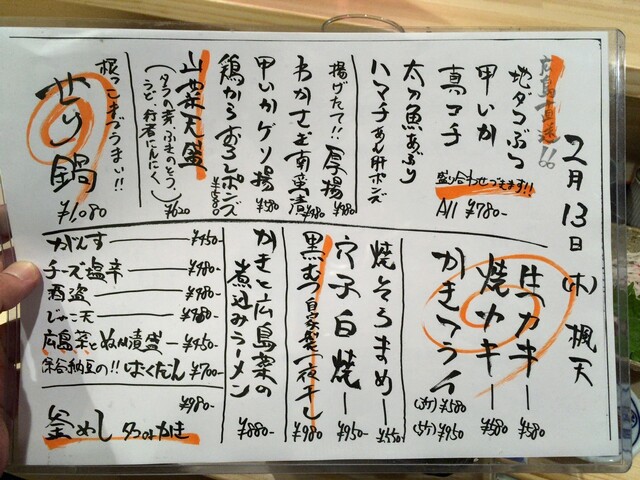 2月13日(木) 楓天
広島直送!!
地ダコぶつ
甲いか
真コチ
盛り合わせできます!!
All ¥780-
太刀魚あぶり
ハマチあん肝ポンズ
揚げたて!! 厚揚 ¥380
わかさぎ南蛮漬 ¥480
甲いかゲソ揚 ¥580
鶏からおろしポンズ ¥580
山菜天盛 ¥620
(タラの芽、ふきのとう、うど、行者にんにく)
根っこまでうまい!!
せり鍋
¥1,080
生カキー ¥580
焼カキー ¥580
かきフライ
(3ケ) ¥580
(5ケ) ¥950
焼そらまめー ¥550
穴子白焼ー ¥950-
黒むつ自家製一夜干し ¥980
かきと広島菜の煮込みラーメン ¥880-
がんす ¥450-
チーズ塩辛 ¥480-
酒盗 ¥480-
じゃこ天 ¥480-
広島菜とぬか漬盛 ¥450
保谷納豆の!! ばくだん ¥700
釜めし タコorかき ¥980-